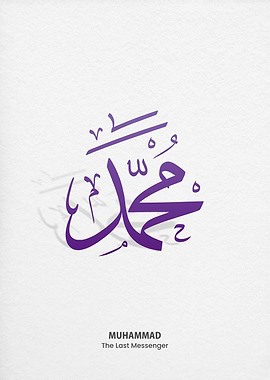 مُحَمَّدٌ
MUHAMMAD
The Last Messenger